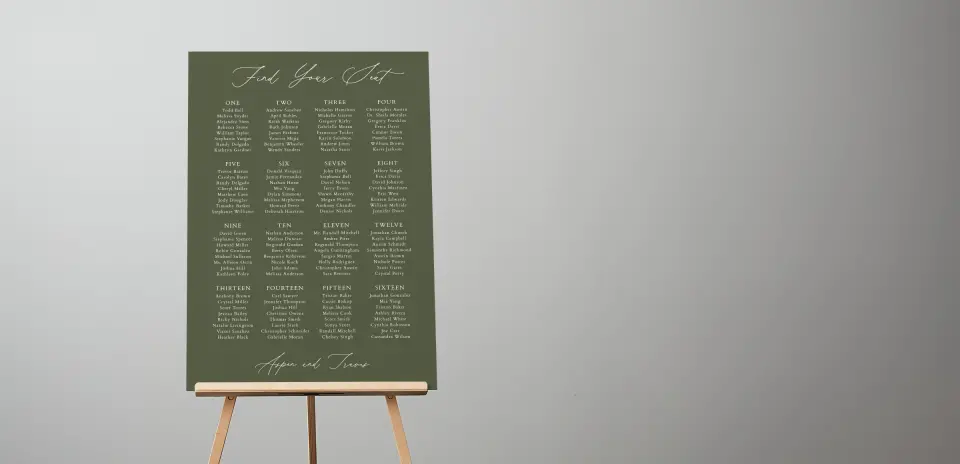 Find Your Seat
ONE
Todd Bell
Melissa Snyder
Alejandro Sims
Rebecca Stone
William Taylor
Stephanie Vargas
Randy Delgado
Kathryn Gardner
TWO
Andrew Sanchez
April Robles
Brent Watkins
Ruth Johnson
James Perkins
Vanessa Mejia
Benjamin Wheeler
Wendy Sanders
THREE
Nicholas Hamilton
Michelle Graves
Gregory Kirby
Gabrielle Moran
Francisco Tucker
Karen Solomon
Andrew Jones
Natasha Scott
FOUR
Christopher Austin
Dr. Sheila Morales
Gregory Franklin
Erica Davis
Connor Dixon
Pamela Torres
William Brown
Kevin Jackson
FIVE
Carolyn Bates
Randy Delgado
Cheryl Miller
Matthew Love
Judy Douglas
Timothy Barker
Stephanie Williams
SIX
Donald Vasquez
Jamie Fernandez
Nathan Hines
Mia Yang
Dylan Simmons
Melissa Mcpherson
Howard Perez
Deborah Harrison
SEVEN
John Duffy
Stephanie Bell
David Nelson
Jerry Evans
Megan Harris
Anthony Chandler
Denise Nichols
EIGHT
Jeffrey Singh
Erica Davis
David Johnson
Cynthia Martinez
Eric Wise
Kristen Edwards
William Mcbride
Jennifer Dixon
NINE
David Green
Stephanie Spencer
Howard Miller
Robin Gonzalez
Michael Sullivan
Ms. Allison Owen
Joshua Hill
Kathleen Pitts
TEN
Nathan Anderson
Melissa Duncan
Reginald Gordon
Barry Oliver
Benjamin Robinson
Nicole Koch
John Adams
Melissa Anderson
ELEVEN
Mr. Randall Mitchell
Andrea Pitts
Reginald Thompson
Angela Cunningham
Sergio Martin
Holly Rodriguez
Christopher Austin
Sara Bowers
TWELVE
Jonathan Church
Kayla Campbell
Aaron Schmidt
Samantha Richmond
Austin Brown
Nichole Foster
Scott Garza
Crystal Perry
THIRTEEN
Anthony Brown
Crystal Miller
Scott Torres
Jessica Bailey
Ricky Nichols
Natalie Livingston
Victor Sanchez
Heather Black
FOURTEEN
Carl Sawyer
Jennifer Thompson
Joshua Hill
Christine Owens
Thomas Smith
Laurie Stark
Christopher Schneider
Gabrielle Moran
FIFTEEN
Tristan Baker
Casey Bishop
Brian Shelton
Melissa Cook
Scott Smith
Sonya Yates
Randall Mitchell
Chelsey Singh
SIXTEEN
Jonathan Gonzalez
Mia Yang
Tristan Baker
Ashley Rivera
Michael White
Cynthia Robinson
Joe Carr
Cassandra Wilson
Aspen and Travis